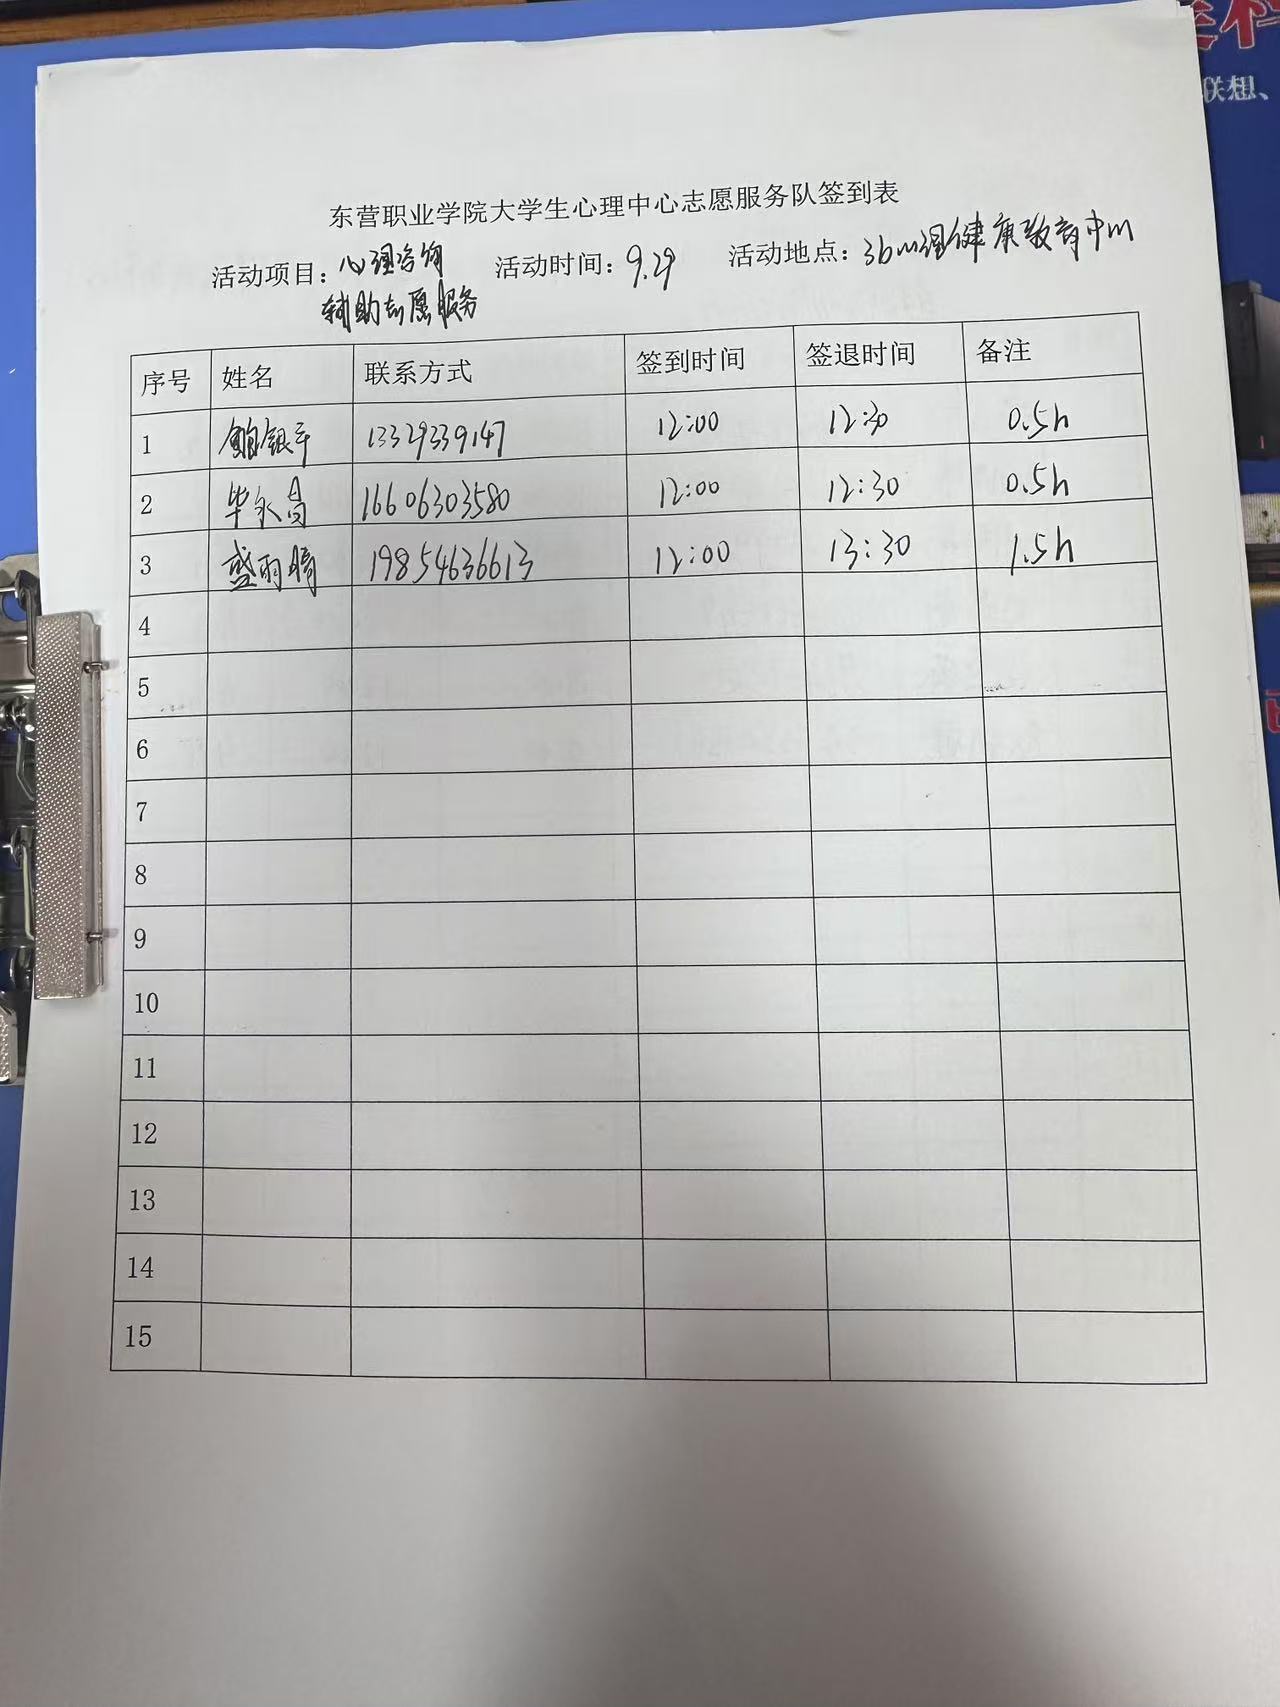 联想、
东营职业学院大学生心理中心志愿服务队签到表
活动项目：心理咨询 活动时间：9.29 活动地点：3b心理健康教育中心
辅助志愿服务
序号 姓名 联系方式 签到时间 签退时间 备注
1 银平 13329339147 12:00 12:30 0.5h
2 毕永昌 16606303580 12:00 12:30 0.5h
3 盛雨晴 19854636613 12:00 13:30 1.5h
4
5
6
7
8
9
10
11
12
13
14
15